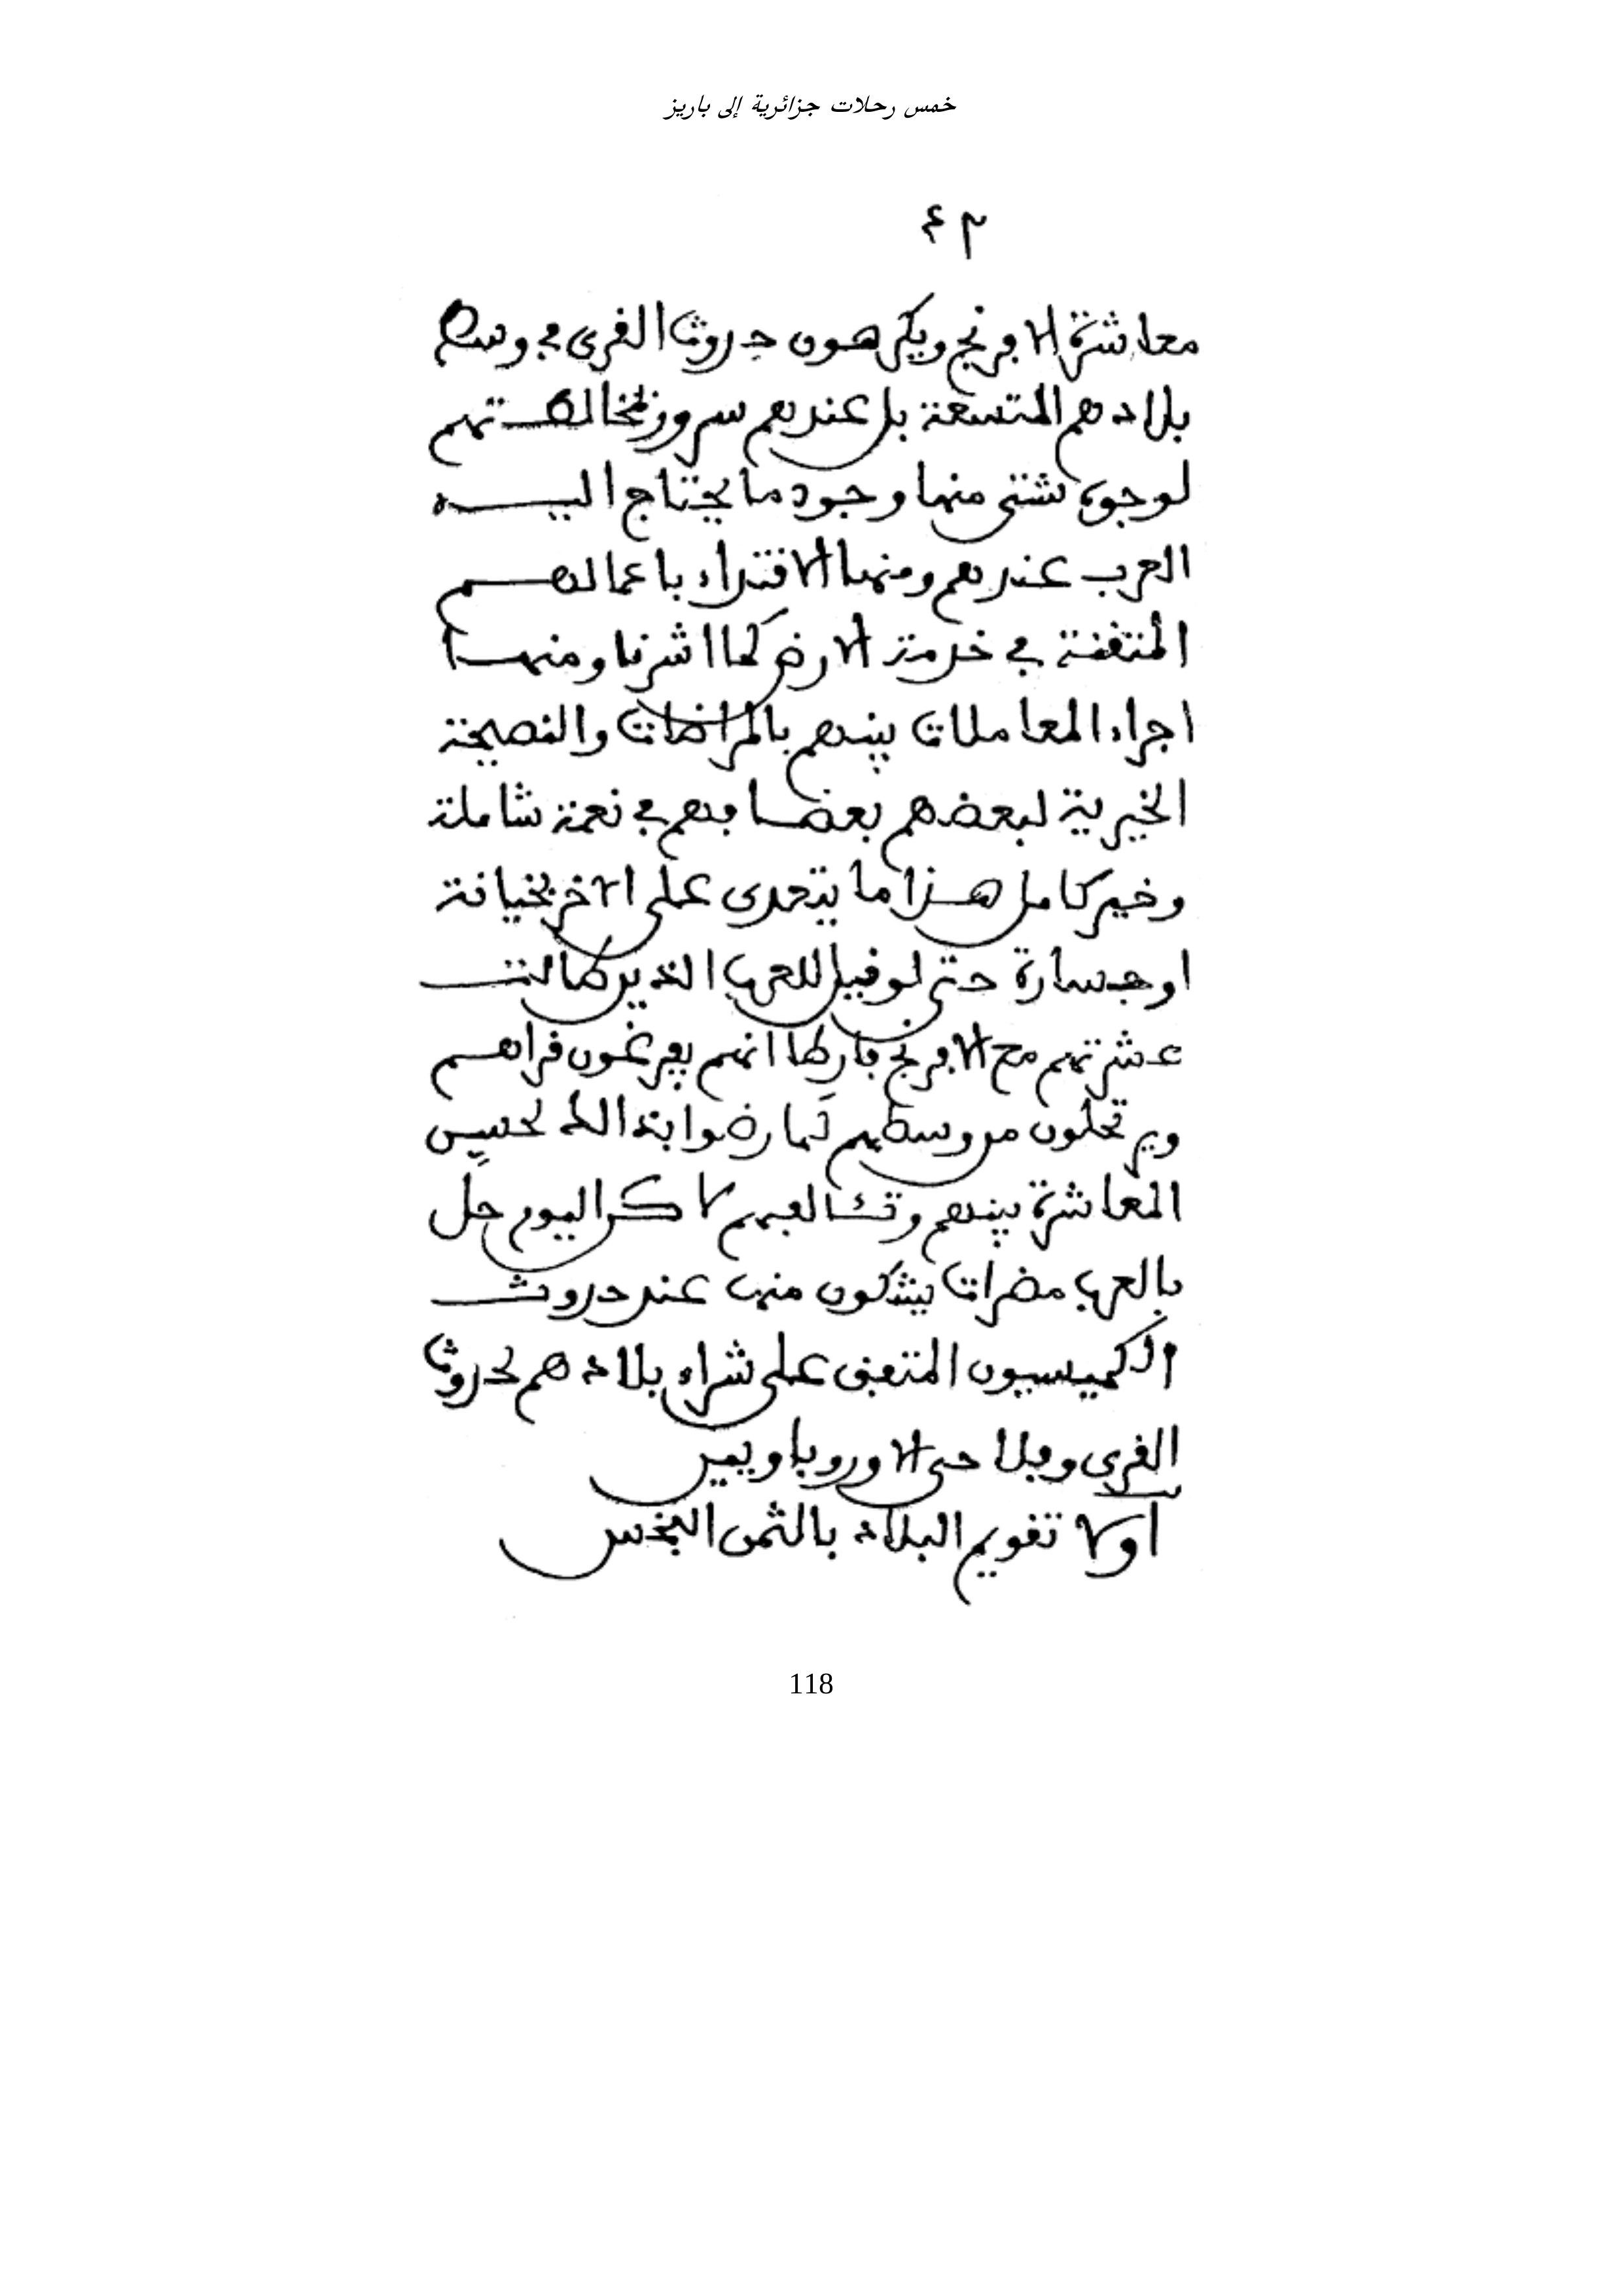 خمس رحلات جزائرية إلى باريز
٢٤
معاشرة الافرنج ويكرهون حدوث القرى في وسط
بلادهم المتسعة بل عندهم سرور بمخالطتهم
لوجوه شتى منها وجود ما يحتاج اليـــه
العرب عندهم ومنها الاقتداء باعمالهـــم
المتقنة في خدمة الارض كما اشرنا ومنهـــا
اجراء المعاملات بينهم بالمرافات والنصيحة
الخيرية لبعضهم بعضا فهم في نعمة شاملة
وخير كامل هـــذا ما يتعدى على الاخر بخيانة
او جسارة حتى لو قيل للعرب الذين طالت
عشرتهم مع الافرنج فارطا انهم يفرغون قراهـــم
ويرتحلون من وسطهم لما رضوا بذالك لحسن
المعاشرة بينهم وتئالفهم لاكن اليوم حل
بالعرب مضرات يشكون منها عند حدوث
الكميسيون المتعين على شراء بلادهم لحدوث
القرى وفلاحي الاوروباويين
اولا تقويم البلاد بالثمن البخس
118